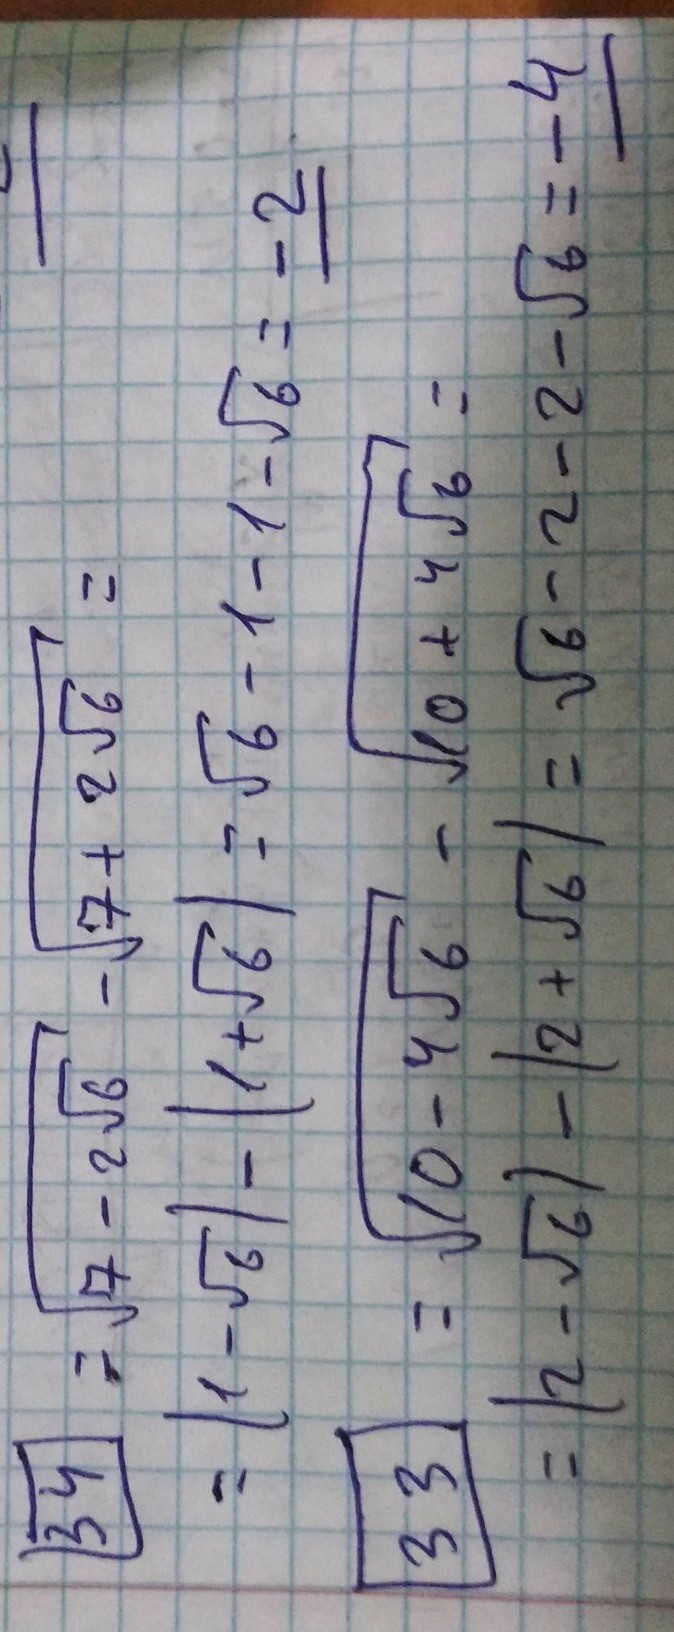 34 = √(7 - 2√6) - √(7 + 2√6) =
= |1 - √6| - |1 + √6| = √6 - 1 - 1 - √6 = -2
33 = √(10 - 4√6) - √(10 + 4√6) =
= |2 - √6| - |2 + √6| = √6 - 2 - 2 - √6 = -4